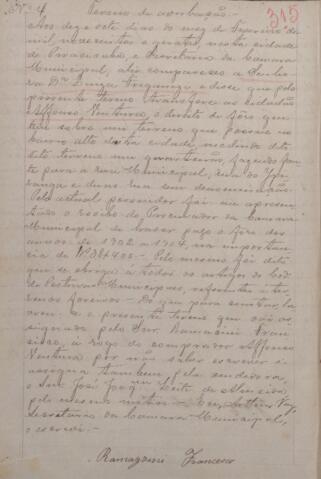 315
Nº 4 Termo de averbação.-
Aos dez e oito dias do mez de Fevereiro de
mil, novecentos e quatro, nesta cidade
de Pirassununga, e Secretaria da Camara
Municipal, ahi compareceu a Senho-
ra Dª e disse que pelo
presente termo transfere ao cidadão
Affonso Ventura, o direito de fôro que
tem sobre um terreno que possue no
bairro alto desta cidade, medindo dito
dito terreno um quarteirão, fazendo fren-
te para a rua Municipal, rua do Ypi-
ranga e duas ruas sem denominação.
Pelo actual possuidor foi me apresen-
tado o recibo do Procurador da Camara
Municipal de haver pago o fôro dos
annos de 1902 a 1904, na importan-
cia de Rs 38$400 - Pelo mesmo foi dito
que se obriga a todos os artigos do Cod.
de Posturas Municipaes, referente a ter-
renos foreiros - Do que para constar, la-
vrei o presente termo que vai as-
signado pelo Snr. Ramazini Fran-
cisco, á rogo do comprador Affonso
Ventura por não saber escrever e
assigna tambem pela vendedora,
o Snr José Joaq. Leite de Almeida
pelo mesmo motivo - Eu, Arthur
Secretario da Camara Municipal,
o escrevi.-
Ramazzini Francesco